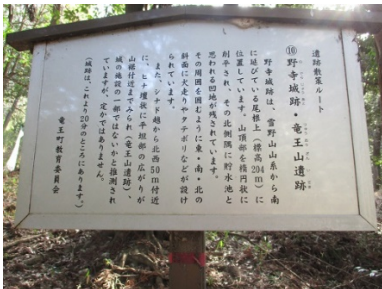 遺跡散策ルート
⑩野寺城跡・竜王山遺跡
野寺城跡は、雪野山山系から南
に延びている尾根上(標高204m)に
位置しています。山頂部を楕円状に
削平され、その北側隅に貯水池と
思われる凹地が残されています。
その周囲を囲むように東・南・北の
斜面に犬走りやタテボリなどが設け
られています。
また、シナド越から北西50m付近
に、ヒナ壇状に平坦部の広がりが
山裾付近までみられ(竜王山遺跡)、
城の施設の一部ではないかと推測され
ていますが、定かではありません。
(城跡は、これより20分のところにあります。)
竜王町教育委員会